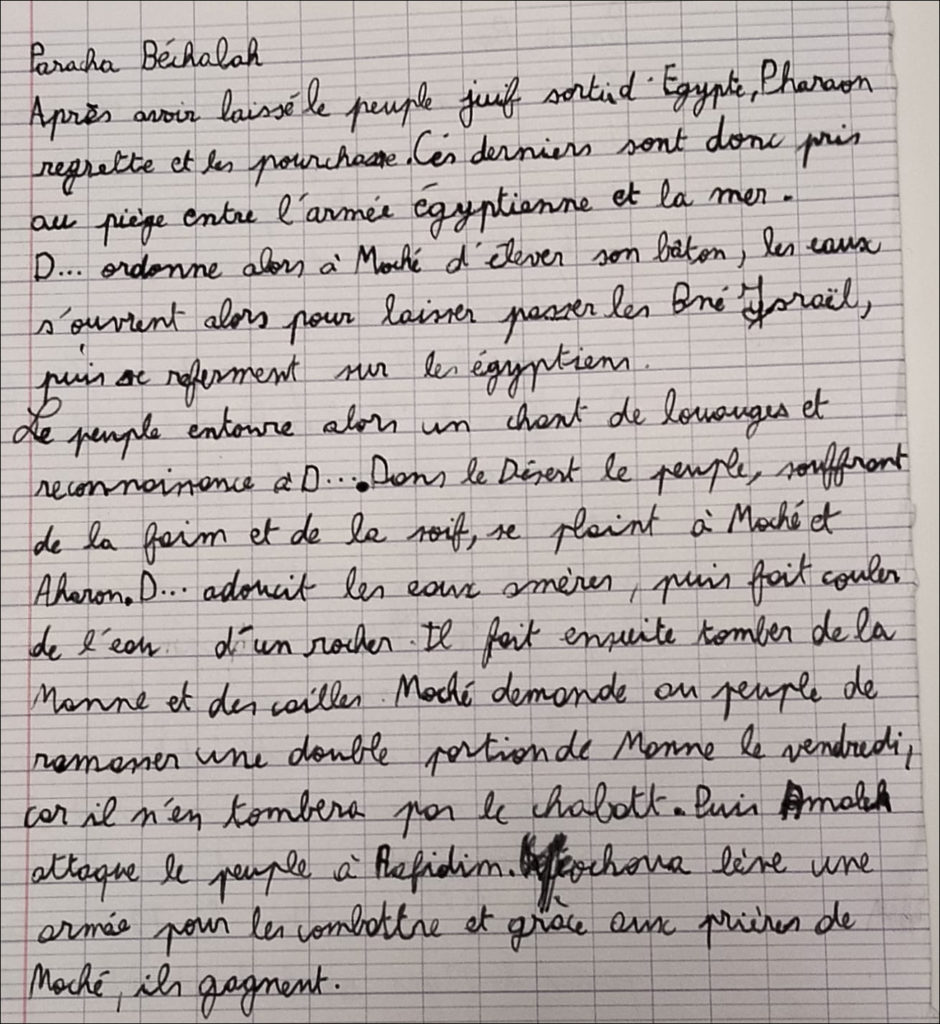 Paracha Béchalah
Après avoir laissé le peuple juif sortir d'Egypte, Pharaon
regrette et les pourchasse. Ces derniers sont donc pris
au piège entre l'armée égyptienne et la mer.
D... ordonne alors à Moché d'élever son bâton, les eaux
s'ouvrent alors pour laisser passer les Bné Ysraël,
puis se referment sur les égyptiens.
Le peuple entoure alors un chant de louanges et
reconnaissance à D.... Dans le Désert le peuple, souffrant
de la faim et de la soif, se plaint à Moché et
Aharon. D... adoucit les eaux amères, puis fait couler
de l'eau d'un rocher. Il fait ensuite tomber de la
Manne et des cailles. Moché demande au peuple de
ramasser une double portion de Manne le vendredi,
car il n'en tombera pas le chabatt. Puis Amalek
attaque le peuple à Rafidim. Yéochoua lève une
armée pour les combattre et grâce aux prières de
Moché, ils gagnent.